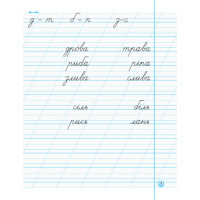 д – т б – п з – с
дрова трава
риба ріпа
злива слива
сіль біль
рись лань